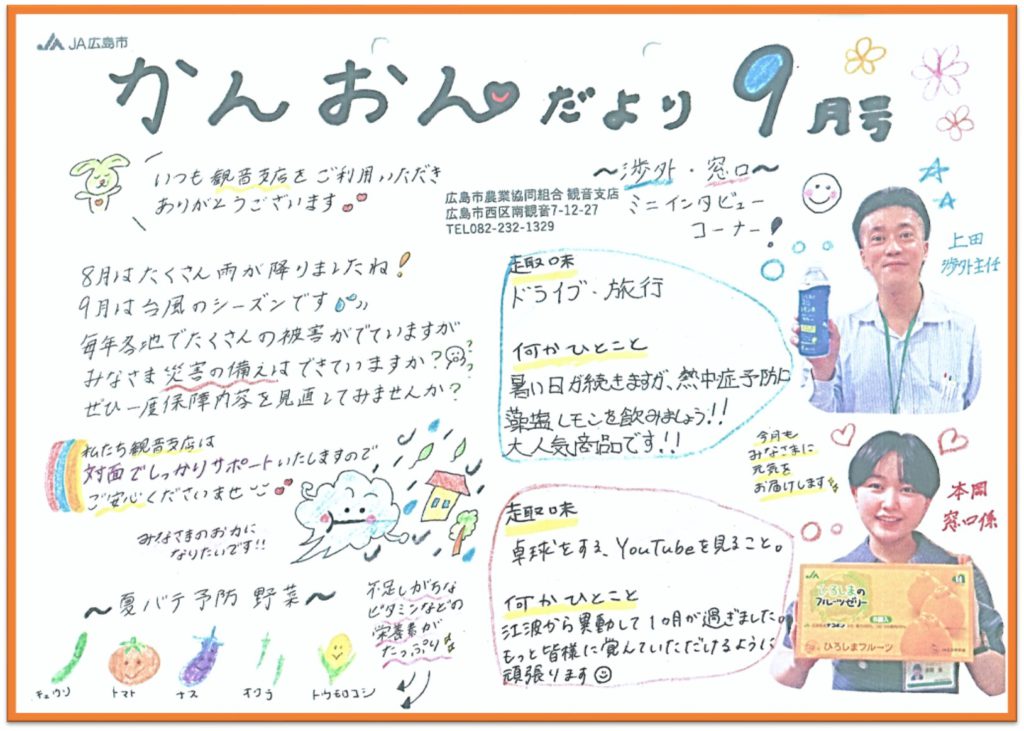 JA広島市
かんおんだより 9月号
いつも観音支店をご利用いただき
ありがとうございます
広島市農業協同組合 観音支店
広島市西区南観音7-12-27
TEL082-232-1329
〜渉外・窓口〜
ミニインタビュー
コーナー!
上田
渉外主任
8月はたくさん雨が降りましたね!
9月は台風のシーズンです
毎年各地でたくさんの被害がでていますが
みなさま災害の備えはできていますか???
ぜひ一度保障内容を見直してみませんか?
趣味
ドライブ・旅行
何かひとこと
暑い日が続きますが、熱中症予防に
藻塩レモンを飲みましょう!!
大人気商品です!!
私たち観音支店は
対面でしっかりサポートいたしますので
ご安心くださいませ
みなさまのお力に
なりたいです!!
今月も
みなさまに
元気を
お届けします
本岡
窓口係
趣味
卓球をする、YouTubeを見ること。
何かひとこと
江波から異動して1ヶ月が過ぎました。
もっと皆様に覚えていただけるように
頑張ります
〜夏バテ予防 野菜〜
不足しがちな
ビタミンなどの
栄養素が
たっぷり
キュウリ
トマト
ナス
オクラ
トウモロコシ
JA
ひろしまの
フルーツゼリー
6個入
ひろしまフルーツ